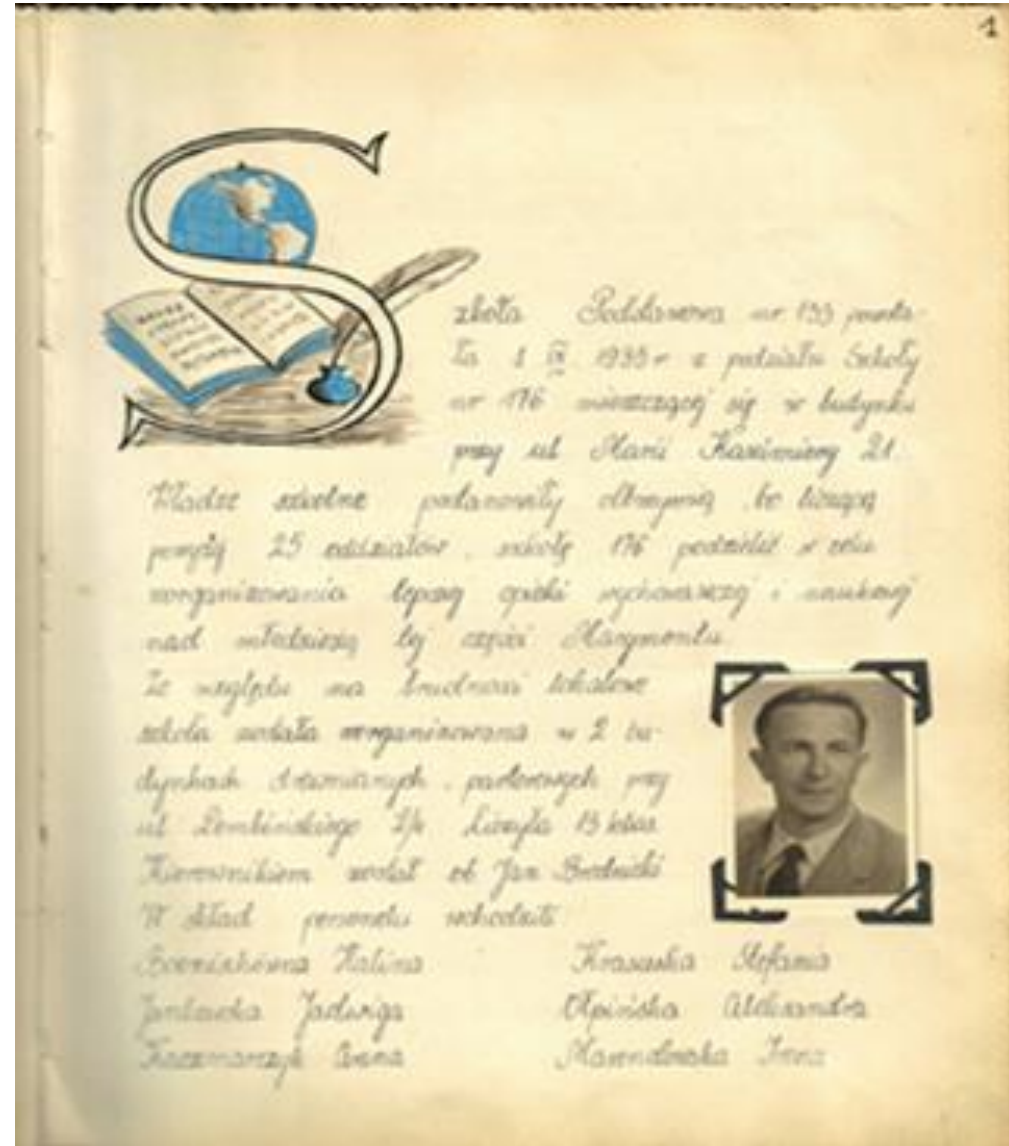 1
Szkoła Podstawowa nr 133 powsta-
ła 1 IX 1935 r z podziału Szkoły
nr 176 mieszczącej się w budynku
przy ul Marii Kazimiery 21.
Władze szkolne postanowiły olbrzymią, bo liczącą
powyżej 25 oddziałów, szkołę 176 podzielić w celu
zorganizowania lepszej opieki wychowawczej i naukowej
nad młodzieżą tej części Marymontu.
Ze względu na trudności lokalowe
szkoła została zorganizowana w 2 bu-
dynkach drewnianych, parterowych przy
ul Liczyła 13 klas.
Kierownikiem został ob Jan Brodnicki
W skład personelu wchodzili
Halina Krasuska Stefania
Jadwiga Olpińska Aleksandra
Kaczmarczyk Anna Irena